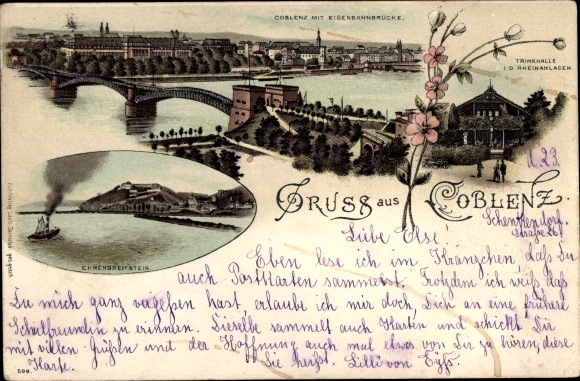 COBLENZ MIT EISENBAHNBRÜCKE.
TRINKHALLE
I. D. RHEINANLAGEN.
d. 23.
GRUSS aus COBLENZ.
Schenkendorf-
straße 26
EHRENBREITSTEIN.
Liebe Else!
Eben lese ich im Kränzchen, daß Du
auch Postkarten sammelst. Trotzdem ich weiß, daß
Du mich ganz vergeßen hast, erlaube ich mir doch, Dich an eine frühere
Schulfreundin zu erinnern. Dieselbe sammelt auch Karten und schickt Dir
mit vielen Grüßen und der Hoffnung auch mal etwas von Dir zu hören, diese
Karte.
Sie heißt: Lilli von Eyß.
599.